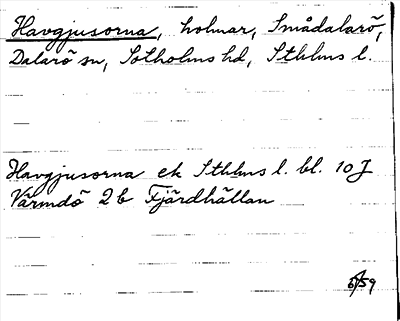 Havgjusorna, holmar, Smådalarö,
Dalarö sn, Sotholms hd, Sthlms l.
Havgjusorna ek Sthlms l. bl. 10 J
Värmdö 2b Fjärdhällan
/59